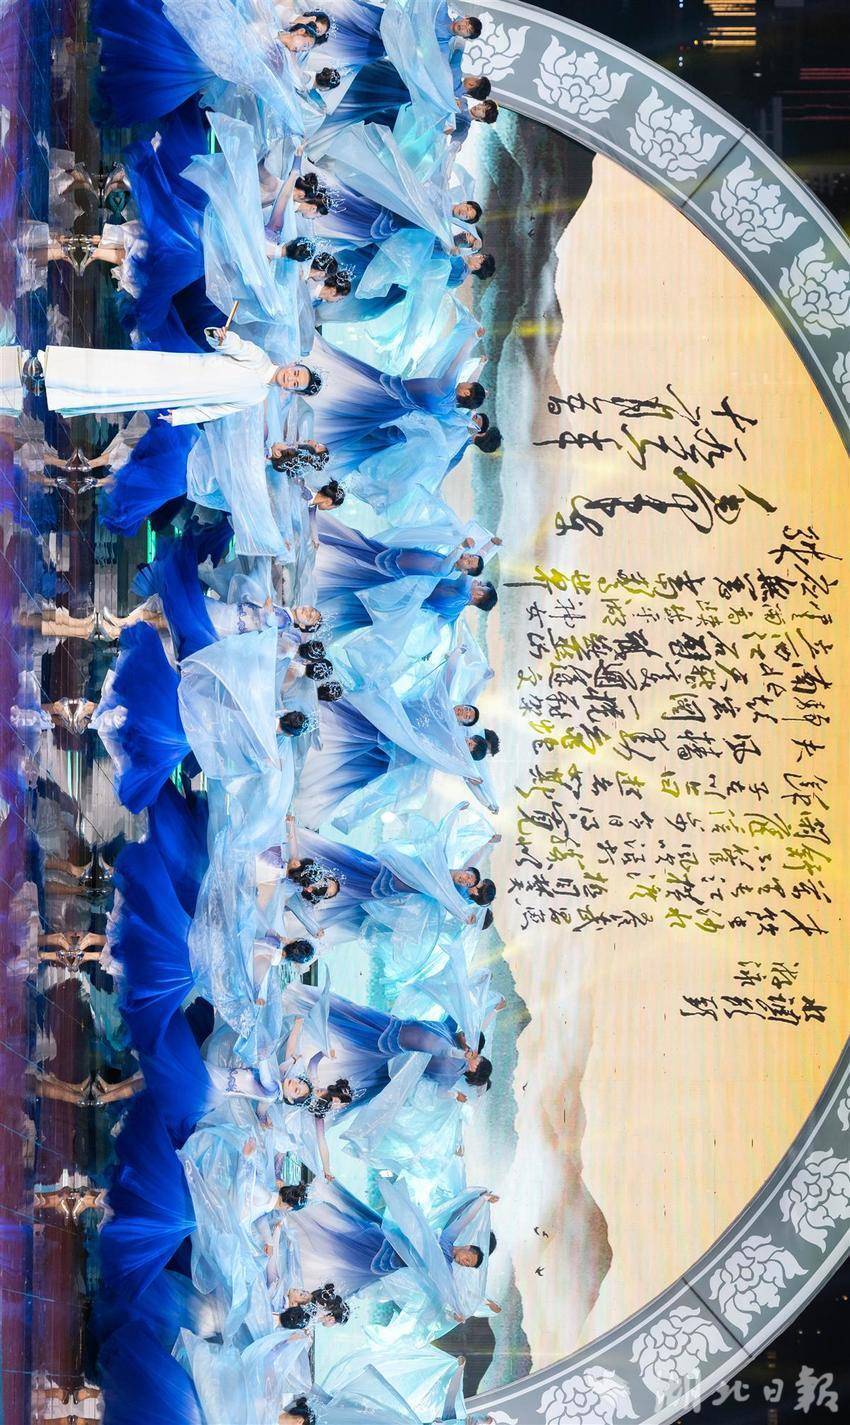 水调歌头
游泳
才饮长沙水又食武昌鱼万
里长江横渡极目楚
天舒不管风吹浪打胜似
闲庭信步今日得宽馀
子在川上曰逝者如斯夫
风樯动龟蛇静起宏图一桥飞架
南北天堑变通途更立
西江石壁截断巫山
云雨高峡出平湖神女
应无恙当惊世界
殊
毛泽东
湖北日报